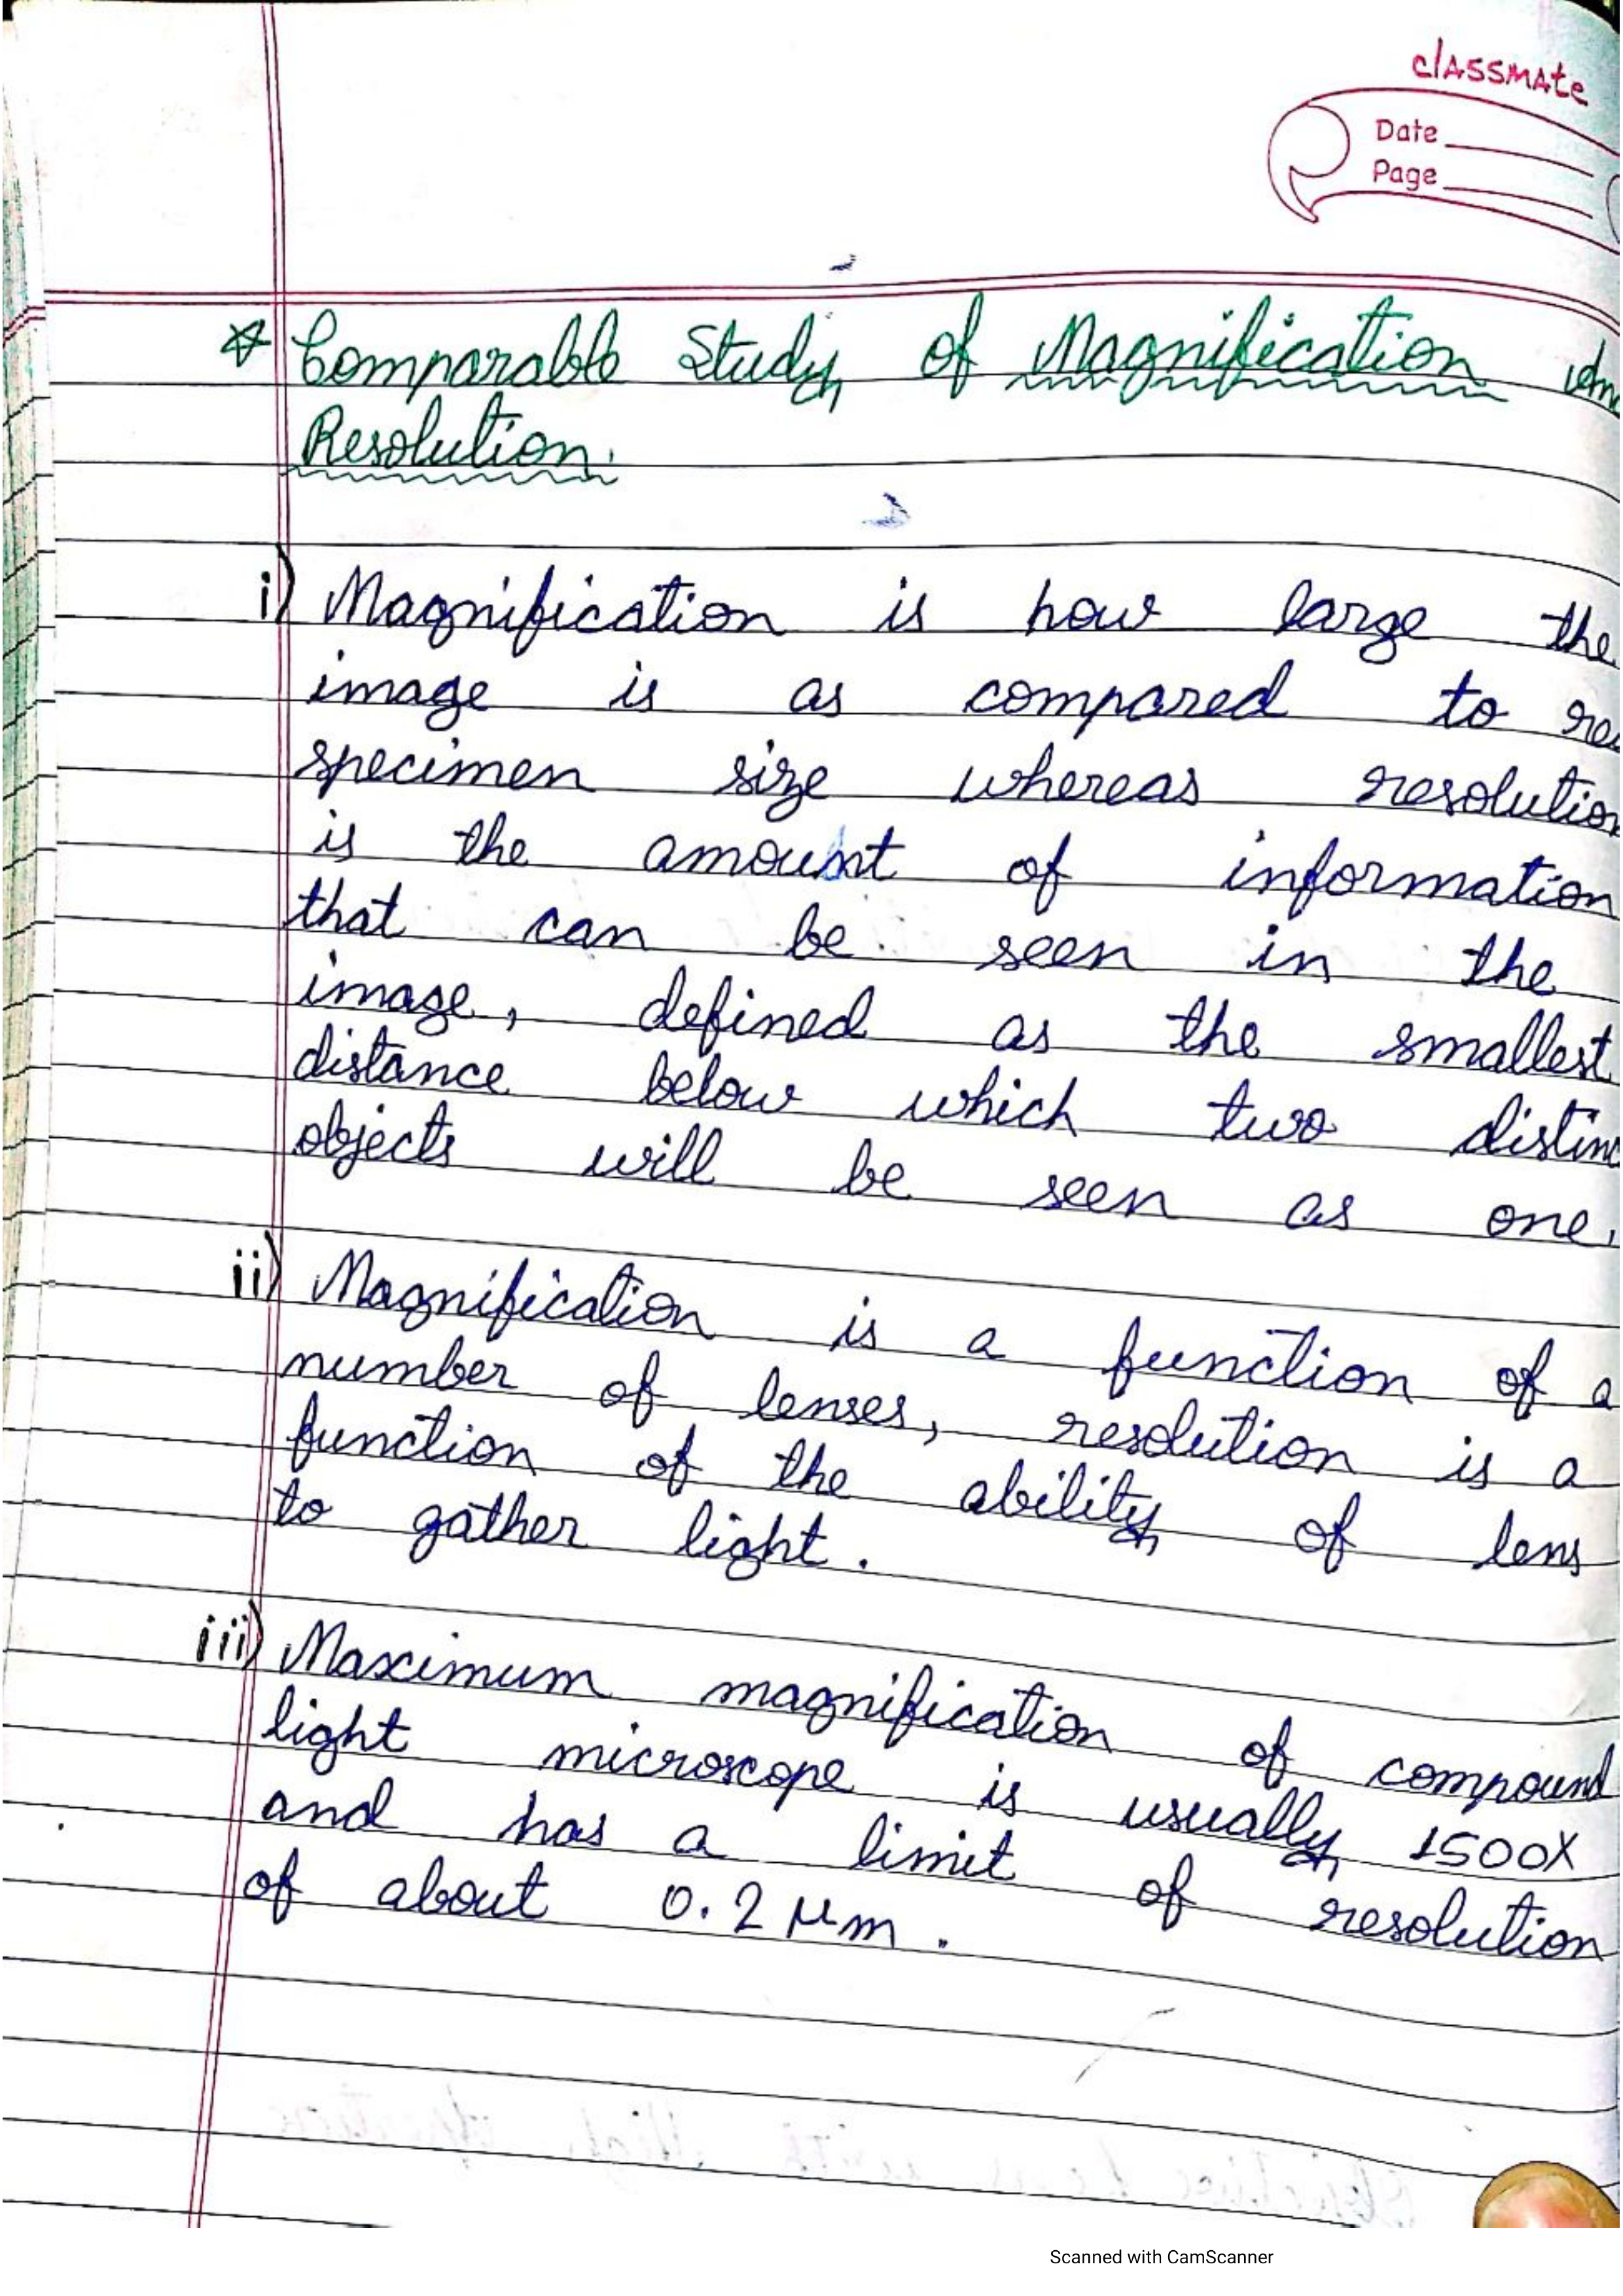 classmate
Date
Page
* Comparable Study of Magnification
Resolution.
i) Magnification is how large the
image is as compared to re
specimen size whereas resolution
is the amount of information
that can be seen in the
image, defined as the smallest
distance below which two distinc
objects will be seen as one.
ii) Magnification is a function of a
number of lenses, resolution is a
function of the ability of lens
to gather light.
iii) Maximum magnification of compound
light microscope is usually 1500X
and has a limit of resolution
of about 0.2 μm.
Scanned with CamScanner